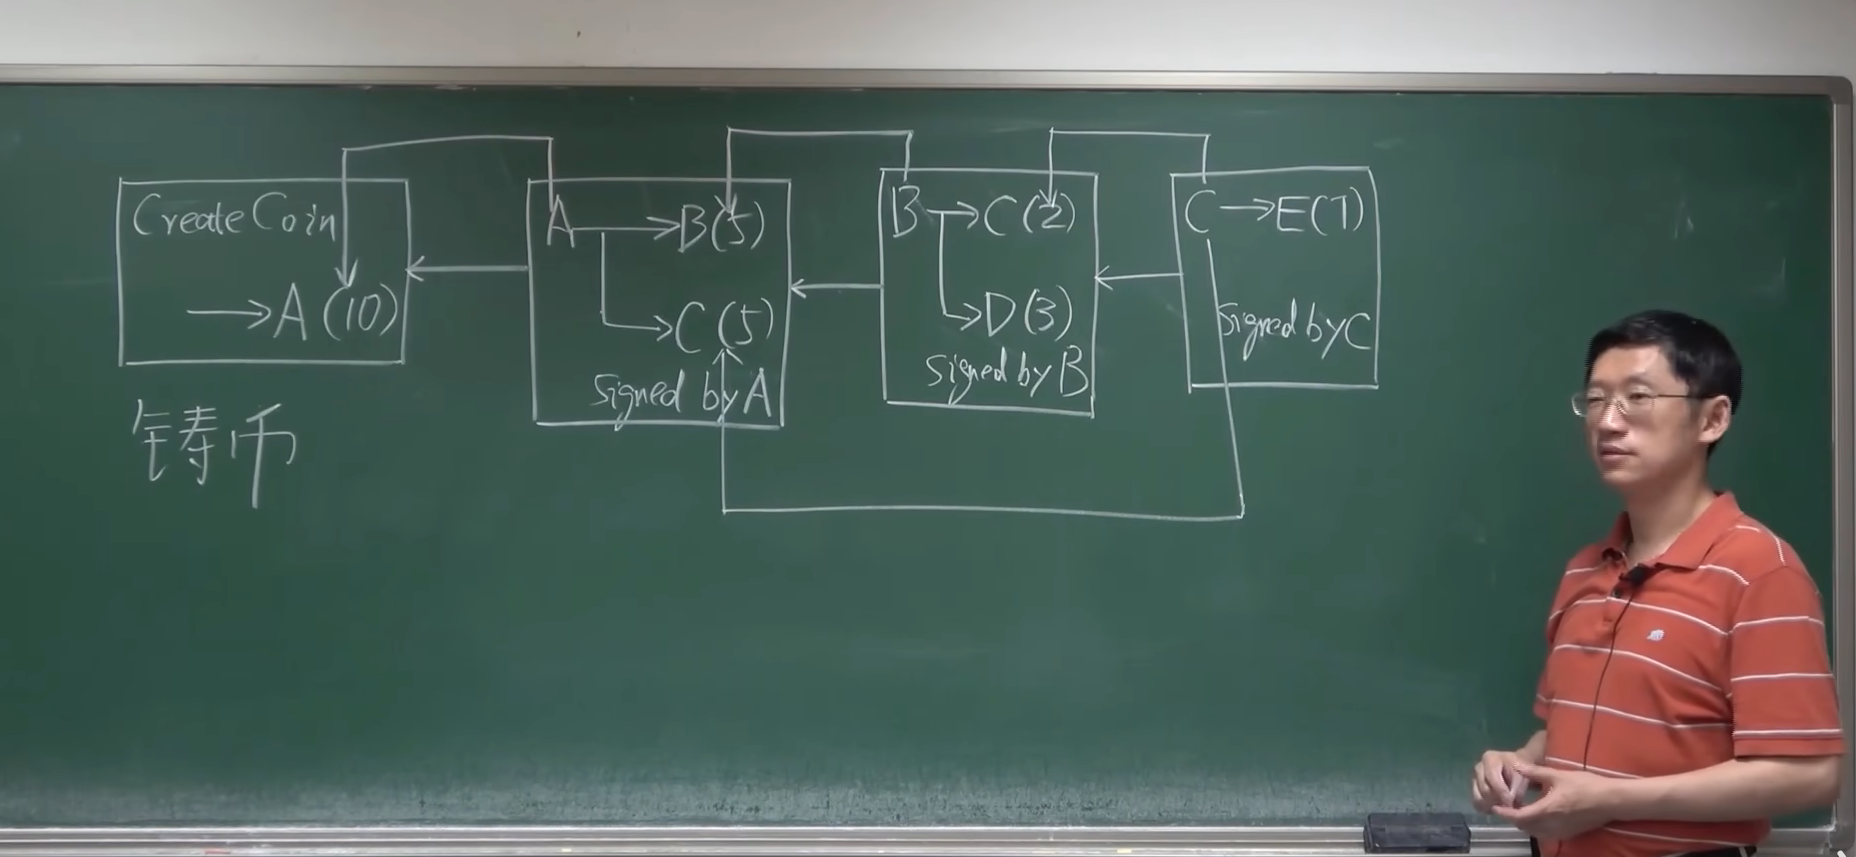 Create Coin
→A(10)
铸币
A→B(5)
→C(5)
signed by A
B→C(2)
→D(3)
signed by B
C→E(7)
signed by C